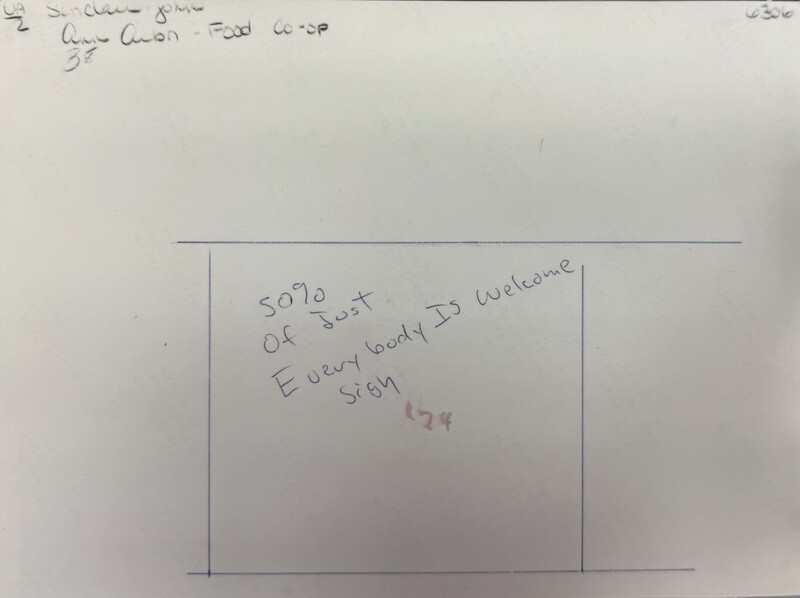 UA Sinclair John 6306
2
Ann Arbor - Food Co-op
38
50%
Of Just
Every body Is Welcome
Sign